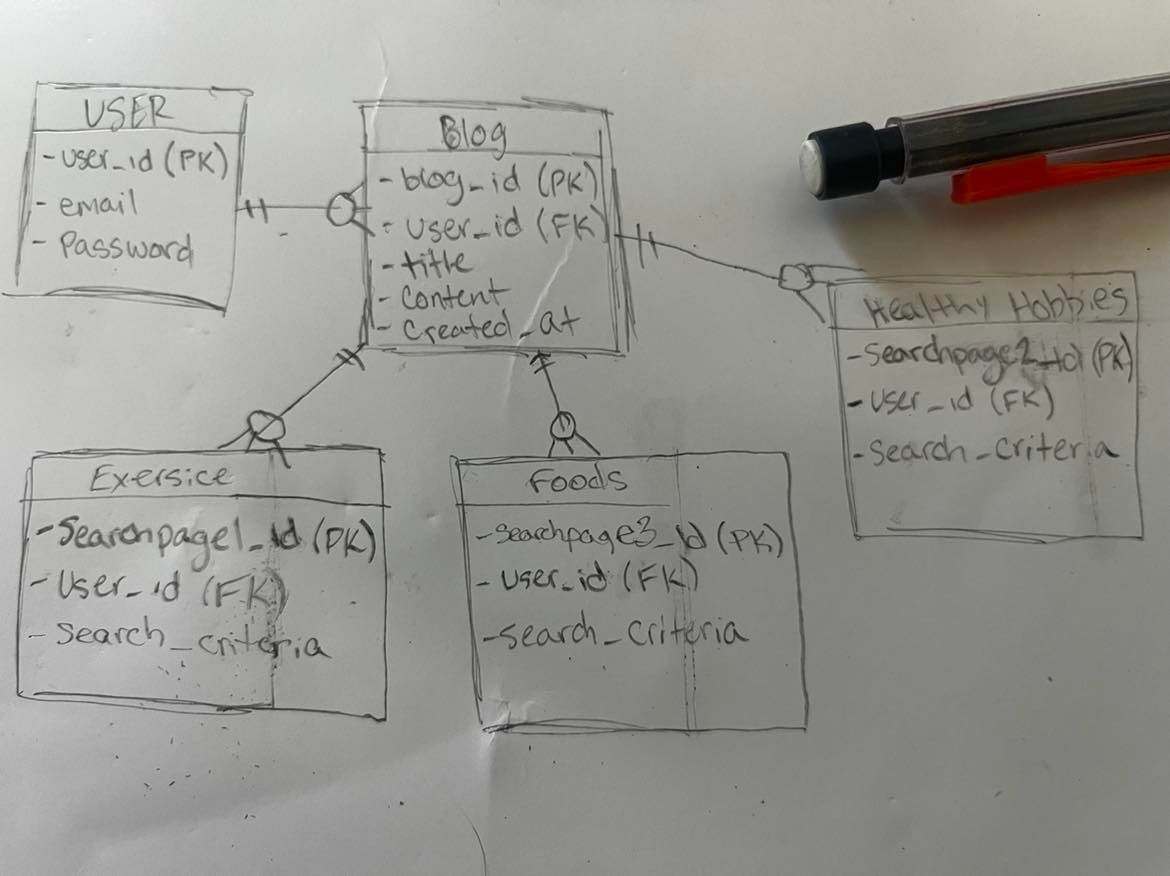 USER
- user_id (PK)
- email
- Password
Blog
- blog_id (PK)
- user_id (FK)
- title
- Content
- Created_at
Healthy Hobbies
- Searchpage2_id (PK)
- User_id (FK)
- Search_Criteria
Exersice
- Searchpage1_id (PK)
- User_id (FK)
- Search_criteria
Foods
- Searchpage3_id (PK)
- User_id (FK)
- Search_Criteria